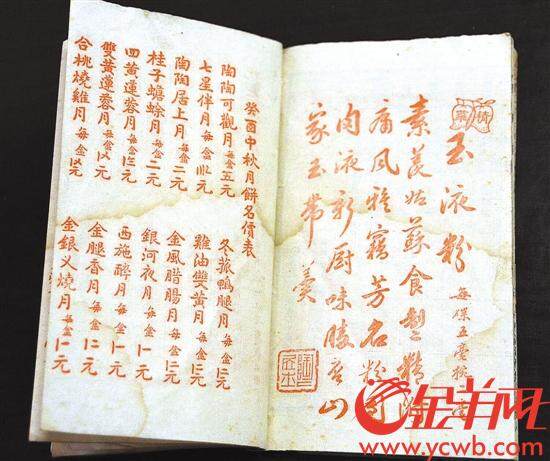 玉液粉 每碟五毫
素羹姑蘇食製精
風雅竊芳名粉
肉液新厨味勝山
家玉帶羹
癸酉中秋月餅名價表
陶陶可觀月每盒五元
七星伴月每盒元
陶陶居上月每盒二元
桂子蟾蜍月每盒二元
四黄蓮蓉月每盒元
雙黄蓮蓉月每盒元
合桃燒雞月每盒元
冬菰鴨腿月每盒元
雞油雙黄月每盒元
金風腊腸月每盒元
銀河夜月每盒元
西施醉月每盒元
金腿香月每盒元
金銀乂燒月每盒元
金羊网
www.ycwb.com